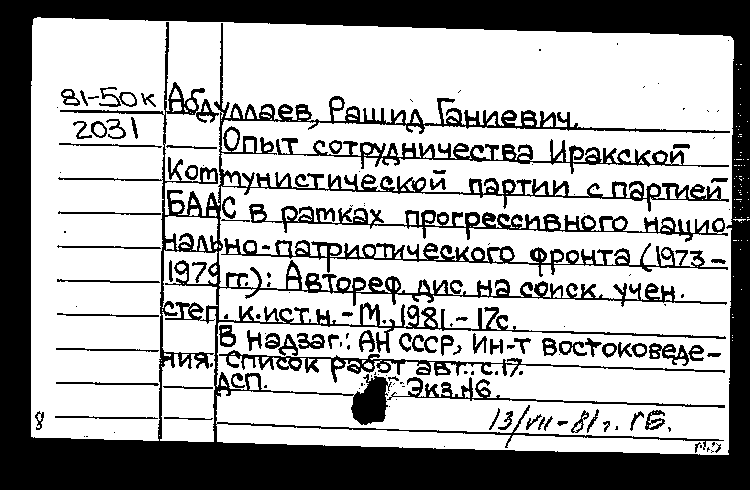 81-50к Абдуллаев, Рашид Ганиевич.
2031 Опыт сотрудничества Иракской
Коммунистической партии с партией
БААС в рамках прогрессивного нацио-
нально-патриотического фронта (1973-
1979 гг.): Автореф. дис. на соиск. учен.
степ. к.ист.н. - М., 1981. - 17с.
В надзаг.: АН СССР, Ин-т востоковеде-
ния. Список работ авт.: с.17.
ДСП. Экз.№6.
13/VII-81г. ГБ.
8